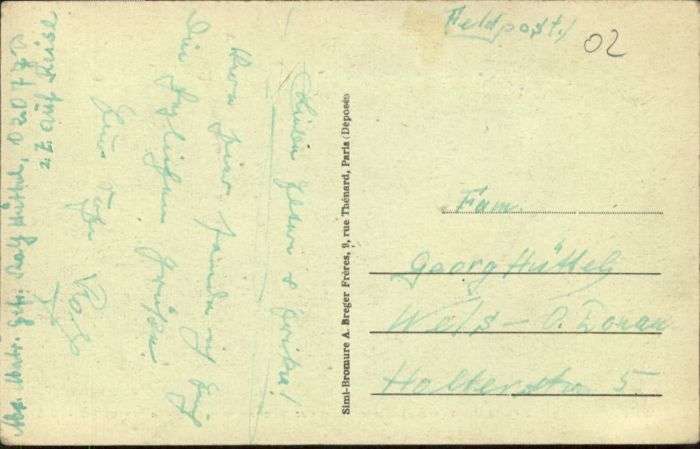 Feldpost!
02
Liebe Eltern & Erika!
Von hier sende ich Euch
Die herzlichsten Grüße
Euer Sohn
Rolf
Abs. Gefr. Rolf Hüttel,
z. Z. auf Reise
Simi-Bromure A. Breger Frères, 9, rue Thénard, Paris (Déposé)
Fam.
Georg Hüttel
Wels - O. Donau
5.